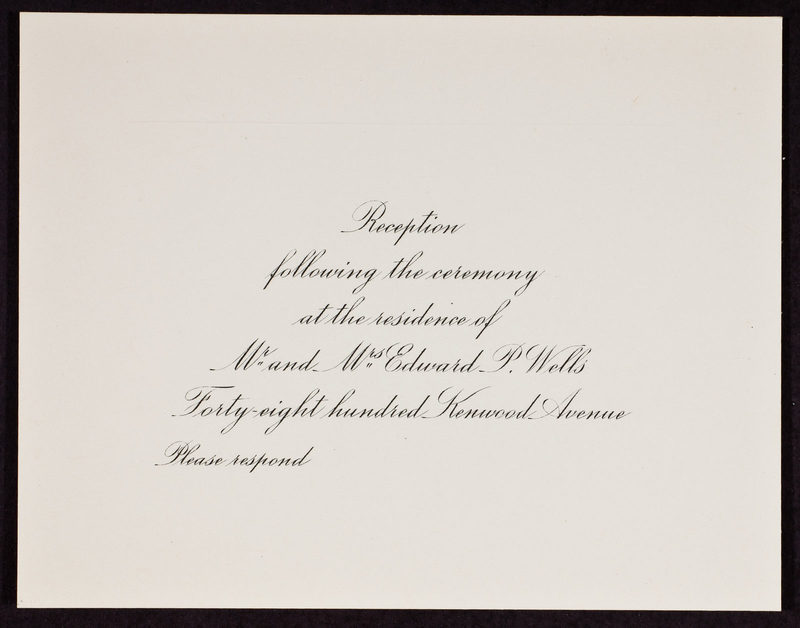 Reception
following the ceremony
at the residence of
Mr. and Mrs. Edward P. Wells
Forty-eight hundred Kenwood Avenue
Please respond